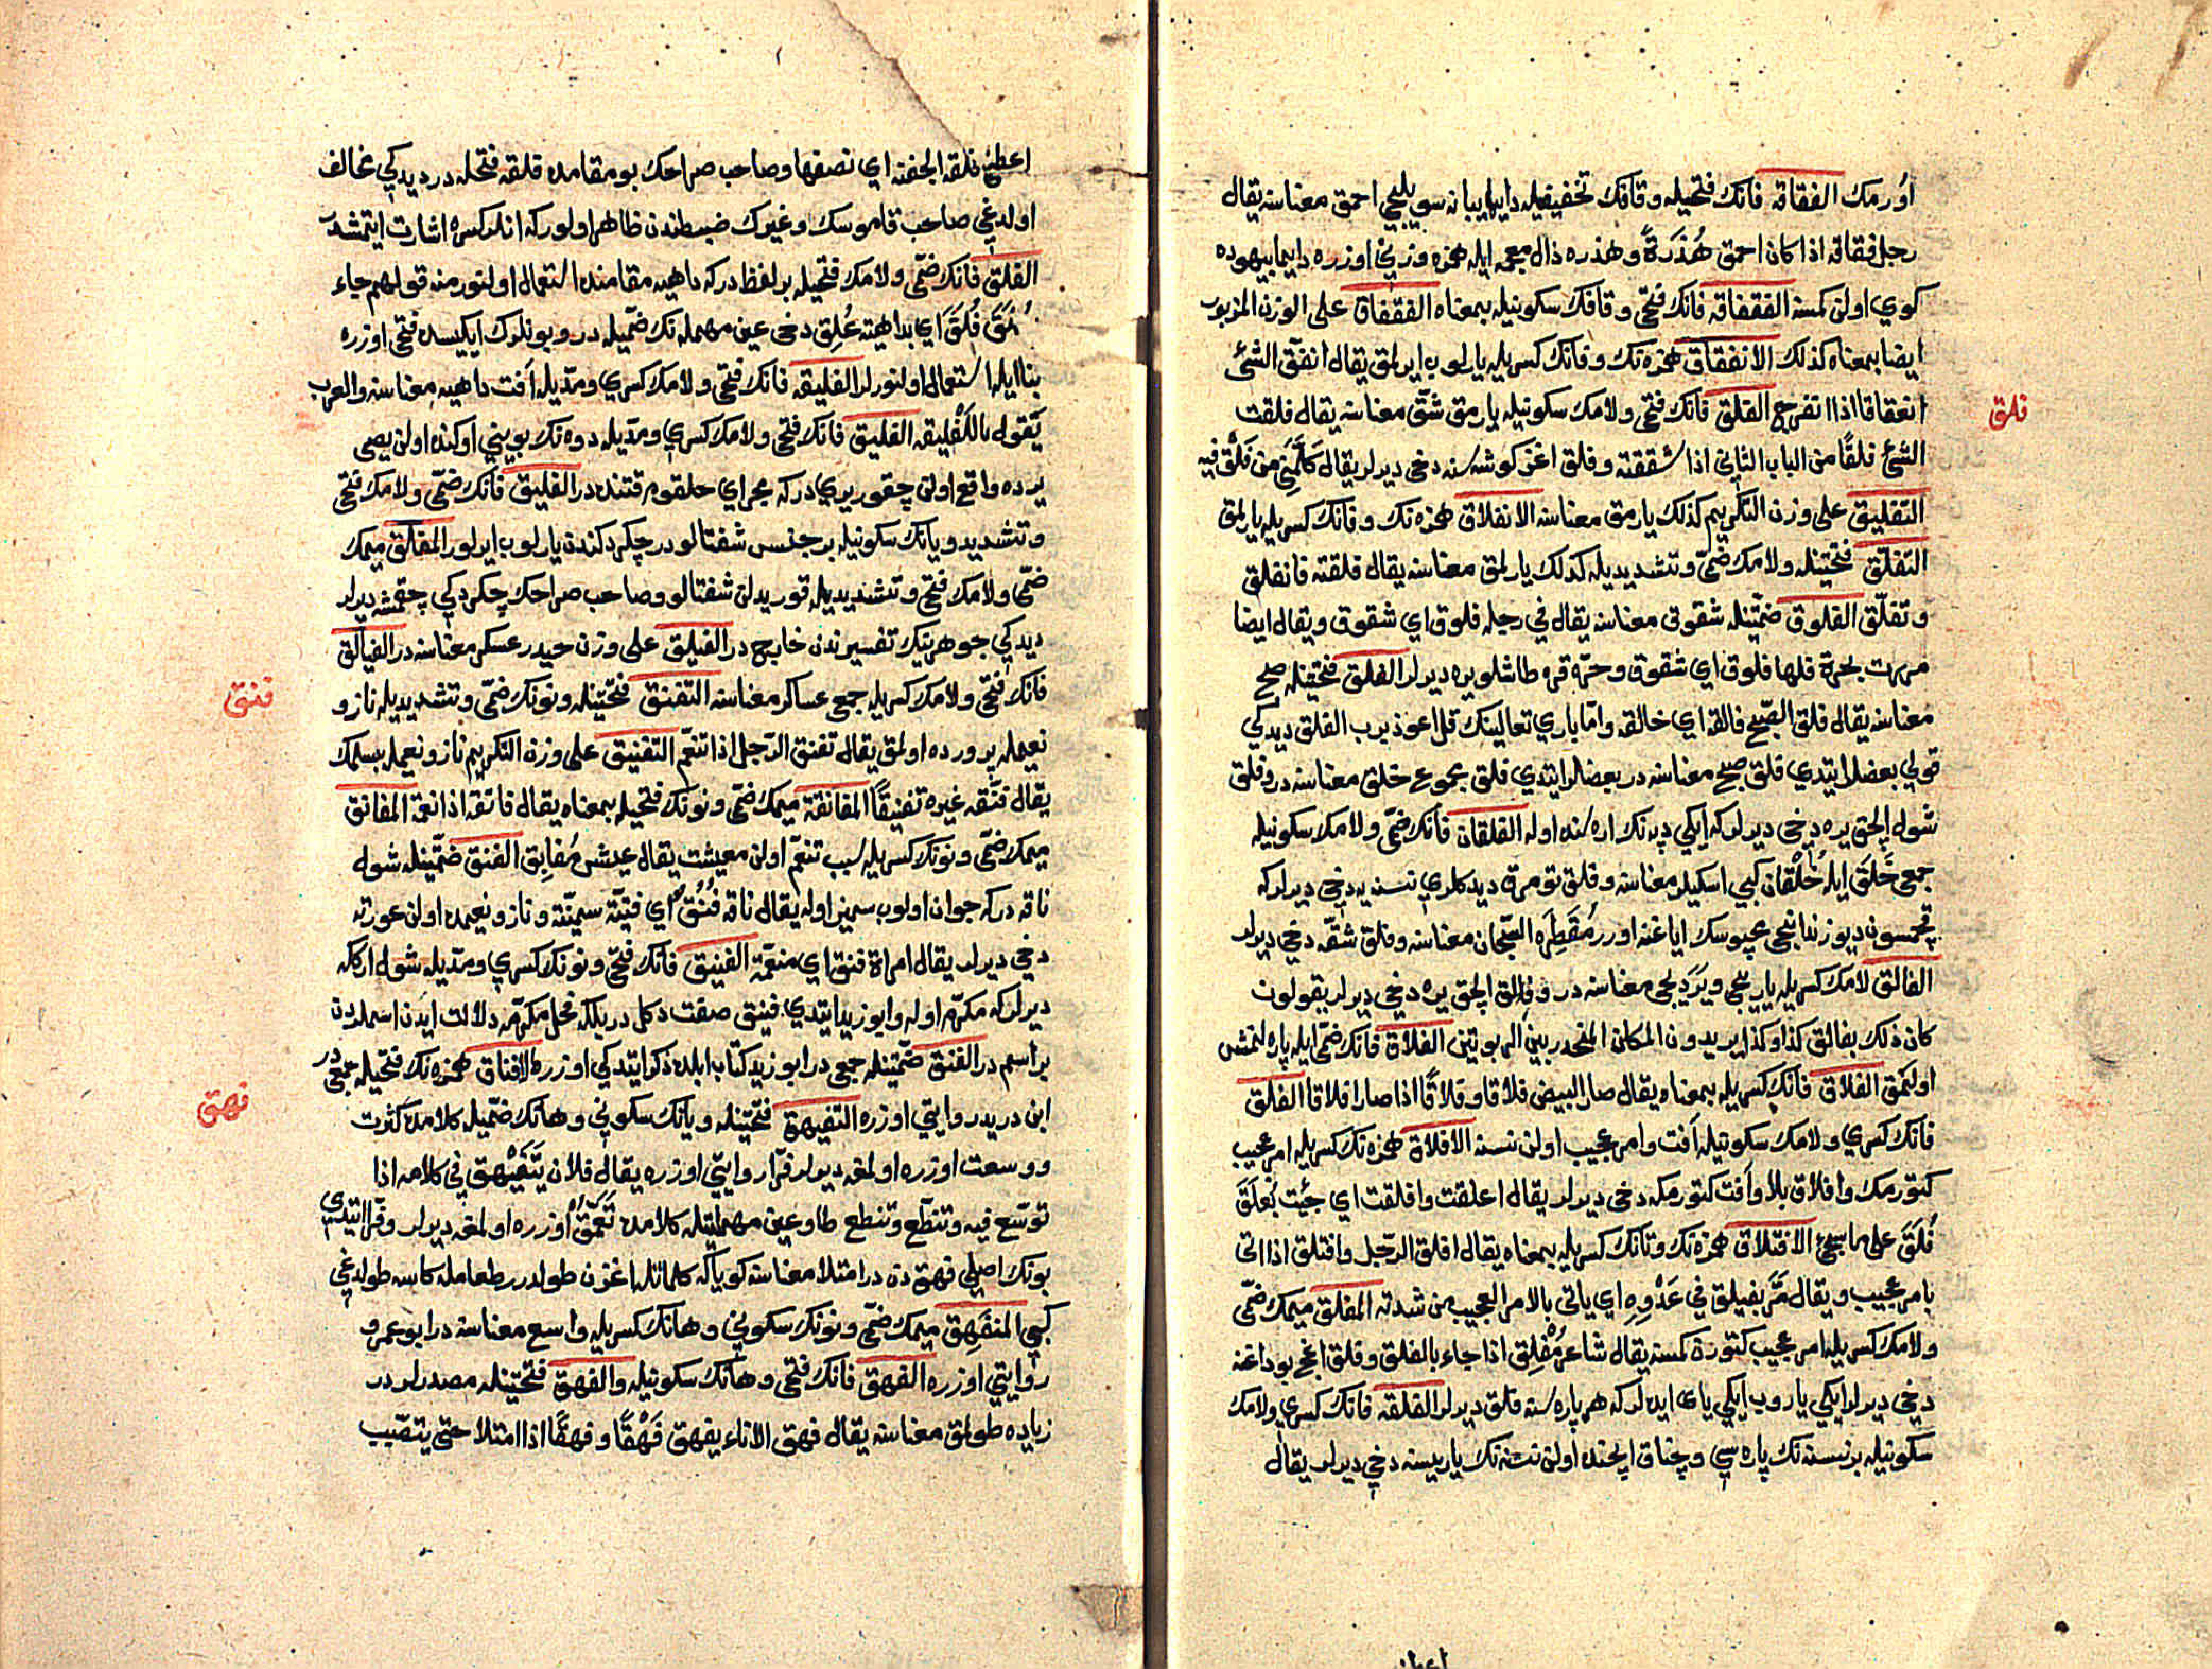 اورمك الفقاقة فانك فتحيله وقافك تخفيفيله دايما يبانه سويليجي احمق معناسنه يقال
رجل فقاقة اذا كان احمق هُذَرَةً وهذره ذال معجمه ايله همزه وزني اوزره دايما بيهوده
كوي اولن كمسنه الفقفاقه فانك فتحى وقافك سكونيله بمعناه الفقفاق على الوزن المزبور
ايضا بمعناه كذلك الانفقاق همزه نك وفانك كسريله ياريلوب ايرلمق يقال انفقّ الشئ
انفقاقا اذا انفرج الفلق فانك فتحى ولامك سكونيله يارمق شقّ معناسنه يقال فلقت
فلق
الشئ فلقًا من الباب الثاني اذا شققته وفلق اغز كوشه سنه دخى ديرلر يقال كلّمني من فَلْق فيه
التفليق على وزن التكريم كذلك يارمق معناسنه الانفلاق همزه نك وفانك كسريله يارلمق
التفلّق فتحتينله ولامك ضمّى وتشديديله كذلك يارلمق معناسنه يقال فلقته فانفلق
وتفلّق الفلوق ضمّتينله شقوق معناسنه يقال في رجله فلوق اي شقوق ويقال ايضا
مررت بحرة فلها فلوق اي شقوق وحرّه قره طاشلويره ديرلر الفلق فتحتينله صبح
معناسنه يقال فلق الصبح فالقه اي خالقه وامّا باري تعالينك قل اعوذ برب الفلق ديدكي
قولي بعضلر ايتدي فلق صبح معناسنه در بعضلر ايتدي فلق مجموع خلق معناسنه در وفلق
شول الچق يره دخى ديرلر كه ايكي دپه نك اراسنده اوله الفلقان فانك ضمّى ولامك سكونيله
جمعى خَلَق ايله خُلْقان كبي اسكيلر معناسنه وفلق تومرق ديدكلري نسنه يه دخى ديرلر كه
قچمسون ديو زندانجى محبوسك اياغنه اورر مُقَطِرَه السّجان معناسنه وفلق شقّه دخى ديرلر
الفالق لامك كسريله ياريجي ويَرَديجى معناسنه در وفالق الچق يره دخى ديرلر يقولون
كان ذلك بفالق كذا وكذا يريدون المكان المنحدر بين الربوتين الفلاق فانك ضمّى ايله پاره لنمش
اولمق الفلاق فانك كسريله بمعناه يقال صار البيض فلاقا وفلاقًا اذا صار افلاقا الفلق
فانك كسري ولامك سكونيله آفت وامر عجيب اولن نسنه الافلاق همزه نك كسريله امر عجيب
كتورمك وافلاق بلا وآفت كتورمكه دخى ديرلر يقال اعلقت وافلقت اي جئت بعُلَقَ
فُلَقَ على ماسيجئ الافتلاق همزه نك وتانك كسريله بمعناه يقال افلق الرّجل وافتلق اذا اتى
بامر عجيب ويقال مَرَّ يفيلق في عَدْوِهِ اي ياتي بالامر العجيب من شدته المفلق ميمك ضمّى
ولامك كسريله امر عجيب كتورن كمسنه يقال شاعر مُفْلِق اذا جاء بالفلق وفلق اغج بوداغنه
دخى ديرلر ايكي ياروب ايكي ياى ايدرلر كه هر پاره سنه فلق ديرلر الفلقه فانك كسري ولامك
سكونيله بر نسنه نك پاره سي وچناق ايچنده اولن نسنه نك ياريسنه دخي ديرلر يقال
اعطني فلقة الجفنة اي نصفها وصاحب صراحك بو مقامده فلقه فتحله در ديدكي مخالف
اولدغي صاحب قاموسك وغيرك ضبطندن ظاهر اولور كه انلر كسره اشارت ايتمشدر
الفلق فانك ضمّى ولامك فتحيله بر لفظ در كه داهيه مقامنده استعمال اولنور منه قولهم جاء
بعُلَقَ فُلَقَ اي بداهية عُلِق دخى عين مهمله نك ضمّيله در وبونلرك ايكيسده فتحى اوزره
بنا ايله استعمال اولنورلر الفليقه فانك فتحى ولامك كسري ومدّيله آفت داهيه معناسنه والعرب
يَقول باللَفليقه الفليق فانك فتحى ولامك كسري ومدّيله دوه نك بويني اوكنده اولن يصى
يرده واقع اولن چقور يري در كه مجراي حلقوم قتنده در الفليق فانك ضمّى ولامك فتحى
وتشديد ويانك سكونيله بر جنس شفتالو در چكردكندن ياريلوب ايرلور المفلّق ميمك
ضمّى ولامك فتحى وتشديديله قوريدلن شفتالو وصاحب صراحك چكردكي چقمشه ديرلر
ديدكي جوهرينك تفسيرندن خارج در الفيلق على وزن حيدر عسكر معناسنه در الفيالق
فانك فتحى ولامك كسريله جمعى عساكر معناسنه التفنق فتحتينله ونونك ضمّى وتشديديله ناز و
فنق
نعيمله پرورده اولمق يقال تفنق الرّجل اذا تنعّم التفنيق على وزن التكريم ناز ونعيمله بسلمك
يقال فنّقه غيره تفنيقًا المفانقة ميمك ضمّى ونونك فتحيله بمعناه يقال فانقه اذا نعمه المفانق
ميمك ضمّى ونونك كسريله سبب تنعّم اولن معيشت يقال عيش مُفانِق الفنق ضمّتينله شول
ناقه در كه جوان اولوب سمز اوله يقال ناقه فُنُقٌ اي فتيّة سمينّة وناز ونعيمده اولن عورته
دخى ديرلر يقال امراة فنق اي منعّمة الفنيق فانك فتحى ونونك كسري ومدّيله شول اركك
ديرلر كه مكرّم اوله وابو زيد ايتدي فنيق صفت دكل در بلكه فحل مكرّمه دلالت ايدن اسملردن
بر اسم در الفنق ضمّتينله جمعى در ابو زيد كتاب ابلده ذكر ايتدكي اوزره الافناق همزه نك فتحيله جمعى در
ابن دريد روايتي اوزره التفيهق فتحتينله ويانك سكوني وهانك ضمّيله كلامده كثرت
فهق
ووسعت اوزره اولمغه ديرلر فرّا روايتي اوزره يقال فلان يَتَفَيْهق في كلامه اذا
توسّع فيه وتنطّع وتنطع طا وعين مهملتيله كلامده تَعَمُّق اوزره اولمغه ديرلر وفرّا ايتدى
بونك اصلي فهق دن در امتلا معناسنه كويا كه كلماتله اغزن طولدرر طعامله كاسه طولدغي
كبي المنفهِق ميمك ضمّى ونونك سكوني وهانك كسريله واسع معناسنه در ابو عمرو
روايتي اوزره الفهق فانك فتحى وهانك سكونيله والفهق فتحتينله مصدرلر در
زياده طولمق معناسنه يقال فهق الاناء يفهق فَهْقًا وفهقًا اذا امتلا حتى يتصبب